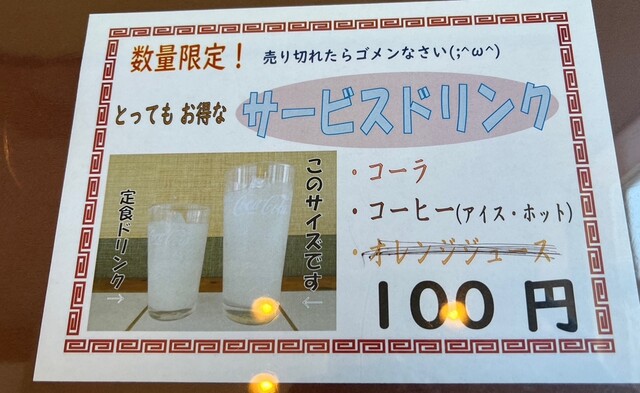 数量限定！ 売り切れたらゴメンなさい(;^ω^)
とっても お得な サービスドリンク
・コーラ
・コーヒー(アイス・ホット)
・オレンジジュース
100 円
定食ドリンク→
このサイズです←
Coca-Cola